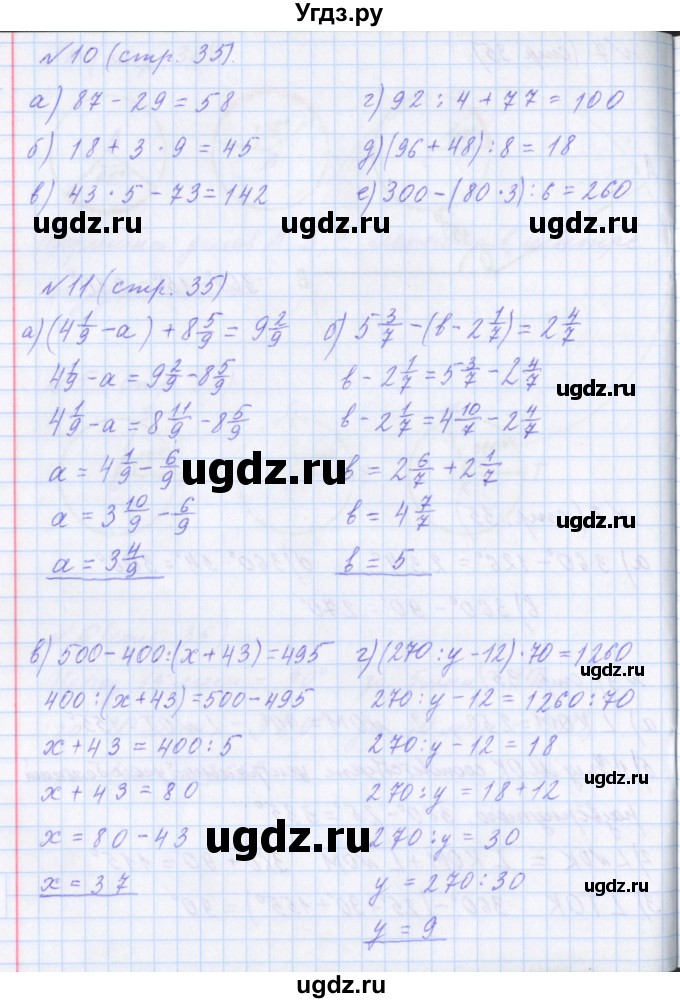 Угдз.ру
№10 (стр. 35).
а) 87 - 29 = 58
г) 92 : 4 + 77 = 100
б) 18 + 3 · 9 = 45
д) (96 + 48) : 8 = 18
в) 43 · 5 - 73 = 142
е) 300 - (80 · 3) : 6 = 260
ugdz.ru ugdz.ru ugdz.ru
№11 (стр. 35)
а) (4 1/9 - а) + 8 5/9 = 9 2/9
4 1/9 - а = 9 2/9 - 8 5/9
4 1/9 - а = 8 11/9 - 8 5/9
а = 4 1/9 - 6/9
а = 3 10/9 - 6/9
а = 3 4/9
б) 5 3/7 - (в - 2 1/7) = 2 4/7
в - 2 1/7 = 5 3/7 - 2 4/7
в - 2 1/7 = 4 10/7 - 2 4/7
в = 2 6/7 + 2 1/7
в = 4 7/7
в = 5
ugdz.ru
ugdz.ru
ugdz.ru
в) 500 - 400 : (х + 43) = 495
400 : (х + 43) = 500 - 495
х + 43 = 400 : 5
х + 43 = 80
х = 80 - 43
х = 37
г) (270 : у - 12) · 70 = 1260
270 : у - 12 = 1260 : 70
270 : у - 12 = 18
270 : у = 18 + 12
270 : у = 30
у = 270 : 30
у = 9
ugdz.ru
ugdz.ru
ugdz.ru
ugdz.ru